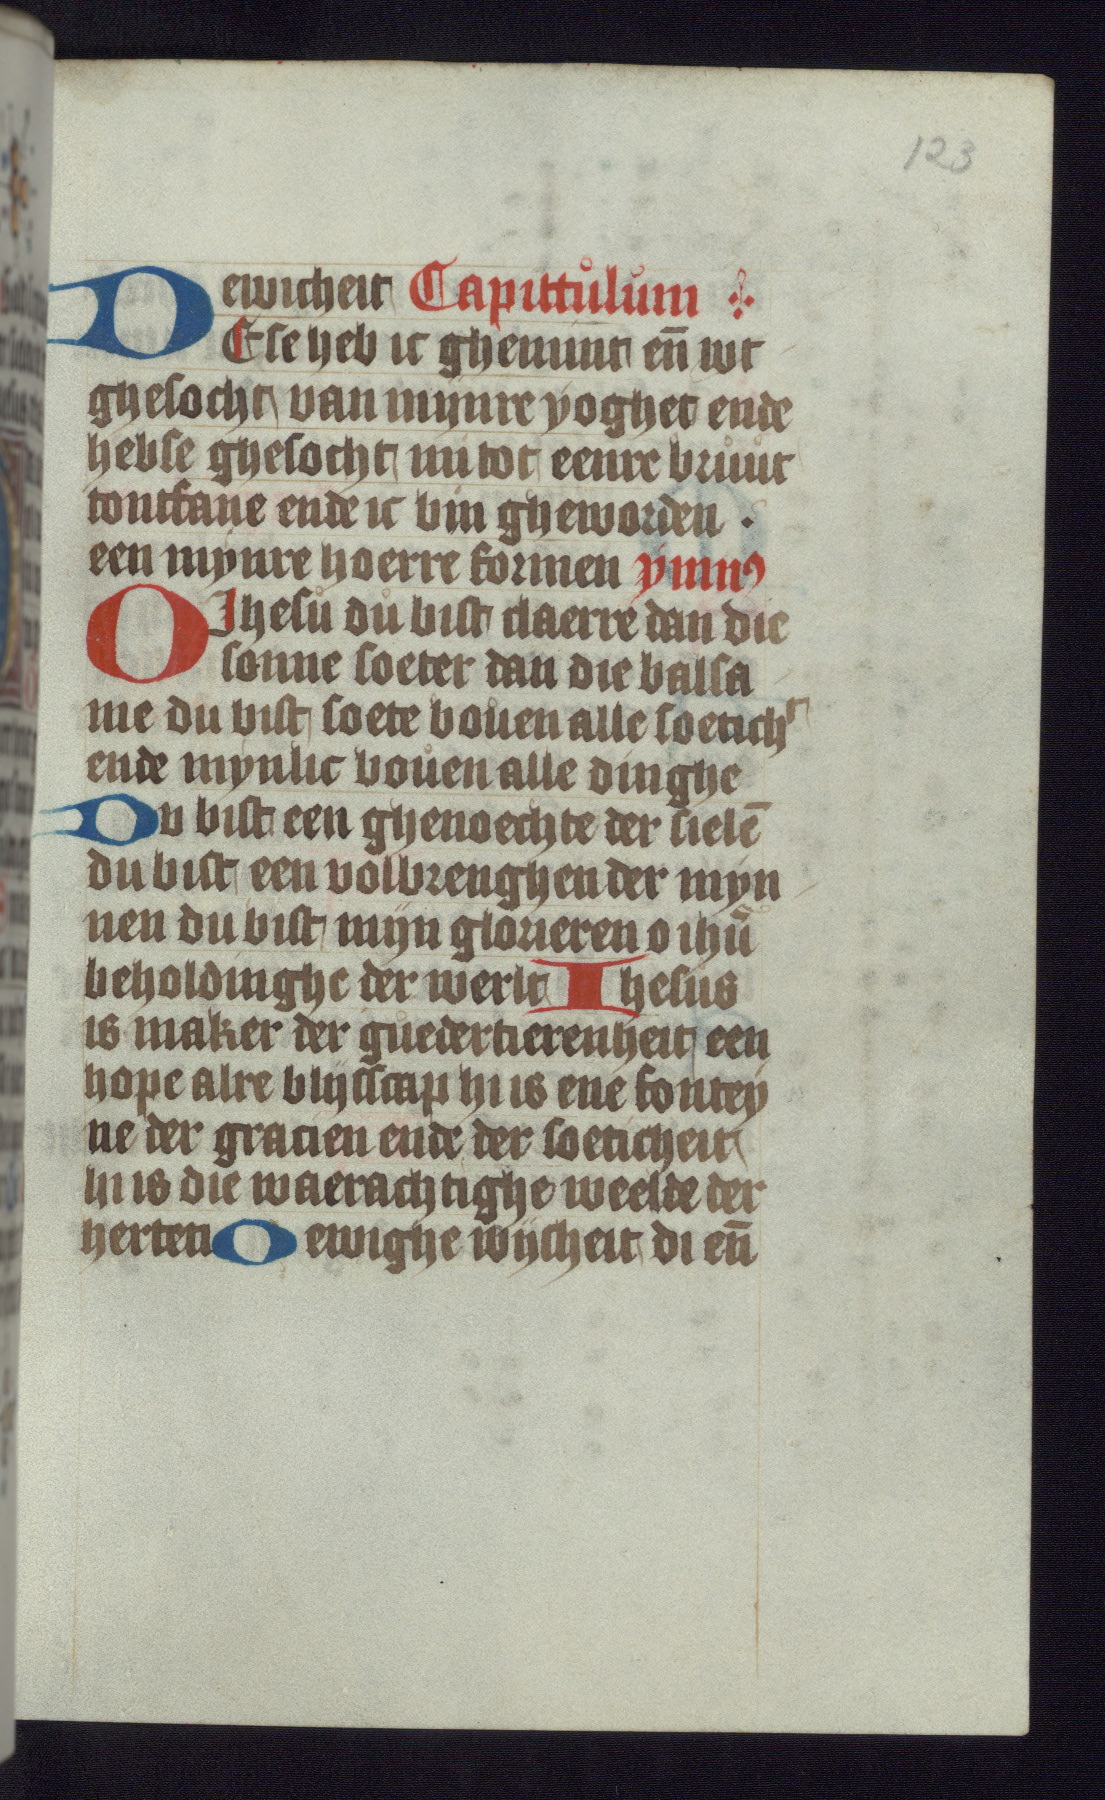 123
ewicheit Capittulum
DEse heb ic ghemint en̄ wt
ghesocht van mijnre yoghet ende
hebse ghesocht mi tot eenre bruut
tontfane ende ic bin gheworden .
een mijnre hoerre formen ymnꝰ
O Jhesu du bist claerre dan die
sonne soeter dan die balsa
me du bist soete bouen alle soetichᵗ
ende mynlic bouen alle dinghe
Du bist een ghenoechte der sielē
du bist een volbrenghen der myn
nen du bist mijn glorieren o ihū
beholdinghe der werlt Ihesus
is maker der guedertierenheit een
hope alre blijsscap hi is ene fontey
ne der gracien ende der soeticheit
hi is die waerachtighe weelde der
herten O ewighe wijsheit di en̄